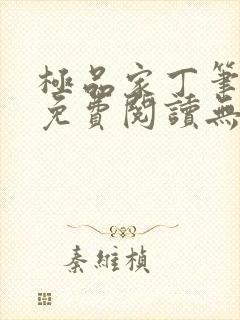 極品家丁筆
免費閱讀無
秦維楨